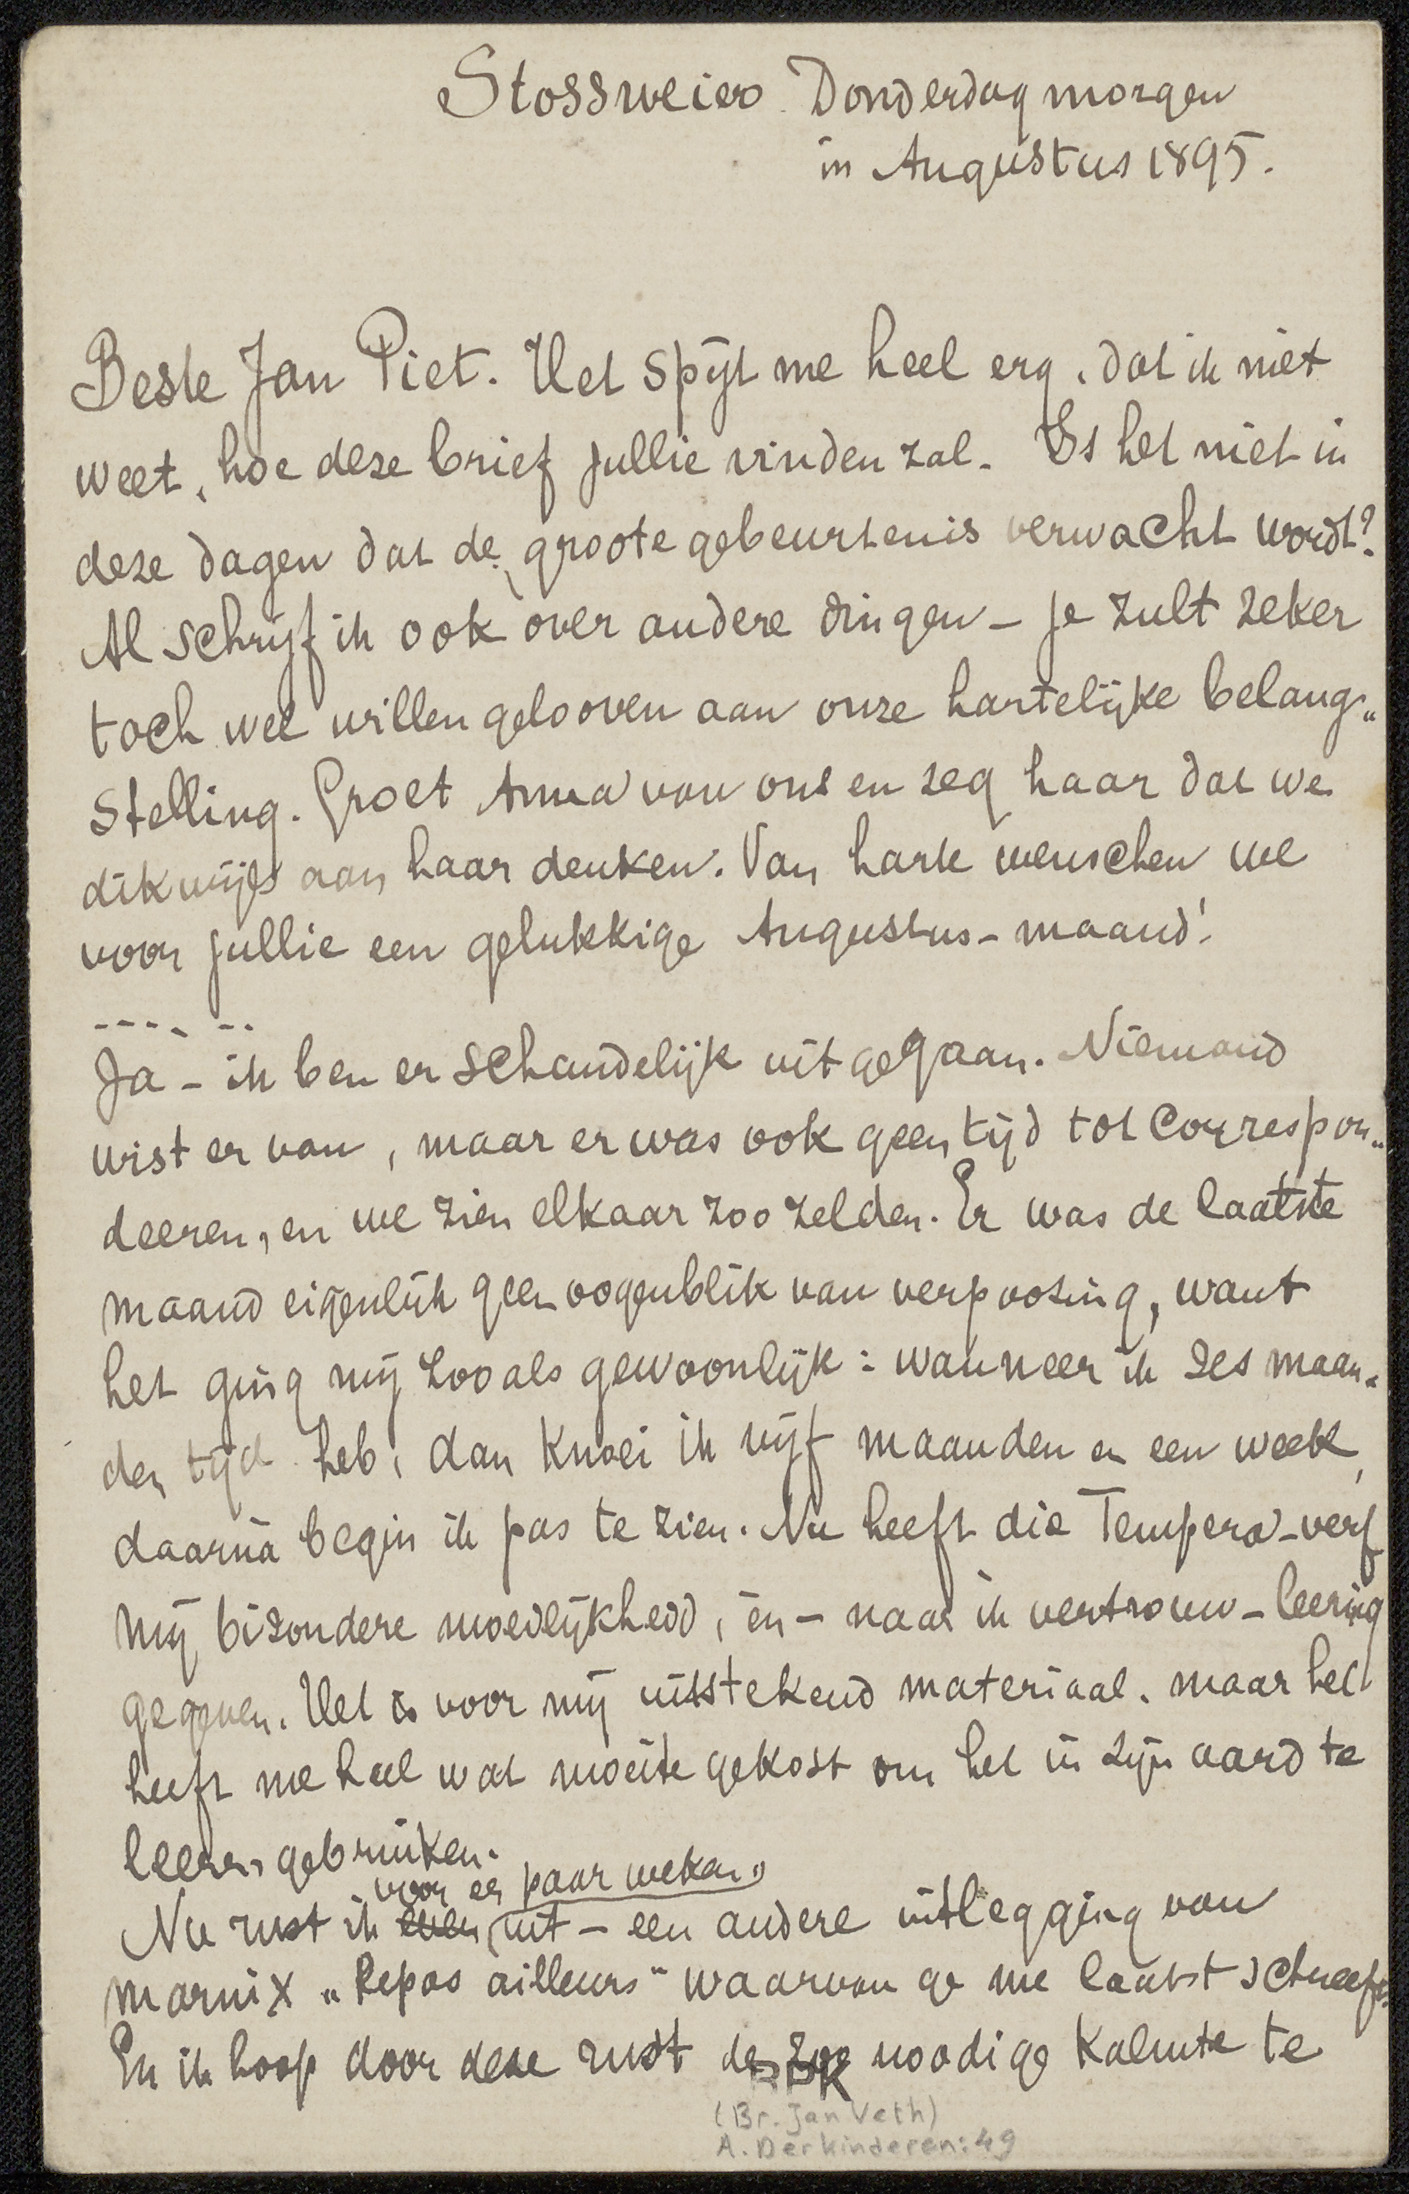 Stossweier Donderdag morgen
in Augustus 1895.
Beste Jan Piet. Het spijt me heel erg, dat ik niet
weet, hoe deze brief jullie vinden zal. Is het niet in
deze dagen dat de groote gebeurtenis verwacht wordt?
Al schrijf ik ook over andere dingen – je zult zeker
toch wel willen gelooven aan onze hartelijke belang„
stelling. Groet Anna van ons en zeg haar dat we
dikwijls aan haar denken. Van harte wenschen we
voor jullie een gelukkige Augustus-maand!
---- --
Ja – ik ben er schandelijk uitgegaan. Niemand
wist er van, maar er was ook geen tijd tot correspon„
deeren, en we zien elkaar zoo zelden. Er was de laatste
maand eigenlijk geen oogenblik van verpoozing, want
het ging mij zooals gewoonlijk: wanneer ik zes maan„
den tijd heb, dan knoei ik vijf maanden en een week,
daarna begin ik pas te zien. Nu heeft die Tempera-verf
mij bizondere moeilijkheid, en – naar ik vertrouw – leering
gegeven. Het is voor mij uitstekend materiaal, maar het
heeft me heel wat moeite gekost om het in zijn aard te
leeren gebruiken.
voor een paar weken
Nu rust ik even uit – een andere uitlegging van
Marnix „Repos ailleurs" waarvan ge me laatst schreeft.
En ik hoop door deze rust de zoo noodige kalmte te
RPK
(Br. Jan Veth)
A. Derkinderen: 49